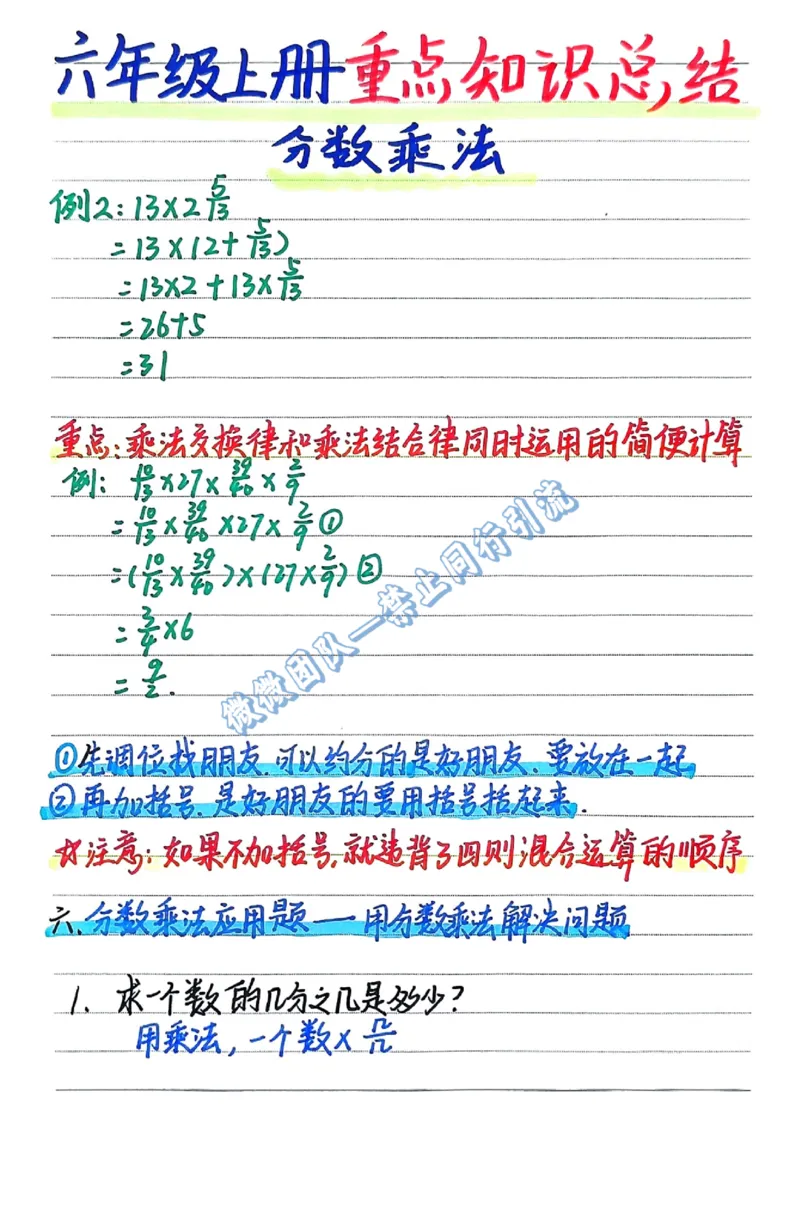 六年级上册重点知识总结
分数乘法
例2:13×2 5/13
=13×(2+5/13)
=13×2+13×5/13
=26+5
=31
重点:乘法交换律和乘法结合律同时运用的简便计算
例:10/13×27×39/40×2/9
=10/13×39/40×27×2/9 ①
=(10/13×39/40)×(27×2/9) ②
=3/4×6
=9/2.
微微团队一禁止同行引流
①先调位找朋友.可以约分的是好朋友.要放在一起,
②再加括号.是好朋友的要用括号括起来.
☆注意:如果不加括号,就违背了四则混合运算的顺序
六.分数乘法应用题——用分数乘法解决问题
1.求一个数的几分之几是多少?
用乘法,一个数×几/几